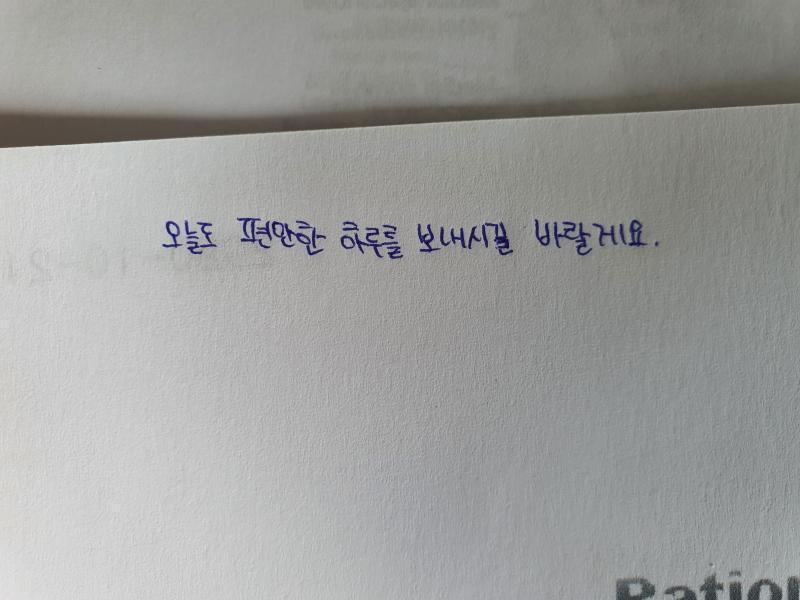 오늘도 편안한 하루를 보내시길 바랄게요.